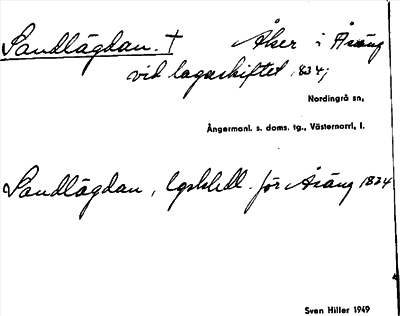 Sandlägdan. † Åker i Åsäng
vid lagaskiftet 1834;
Nordingrå sn,
Ångermanl. s. doms. tg., Västernorrl, l.
Sandlägdan, lgskhdl. för Åsäng 1834
Sven Hiller 1949